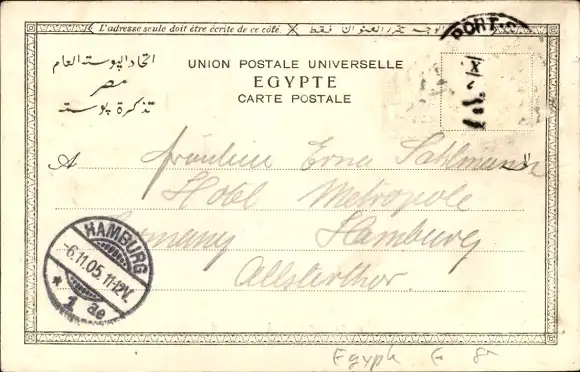 L'adresse seule doit être écrite de ce côté.
PORT-S
اتحاد البوستة العام
مصر
تذكرة بوستة
UNION POSTALE UNIVERSELLE
EGYPTE
CARTE POSTALE
A
Fräulein Erna
Hotel Metropole
Germany Hamburg
Allsterthor.
HAMBURG
-6.11.05.11-12V.
* 1 ae
Egypt